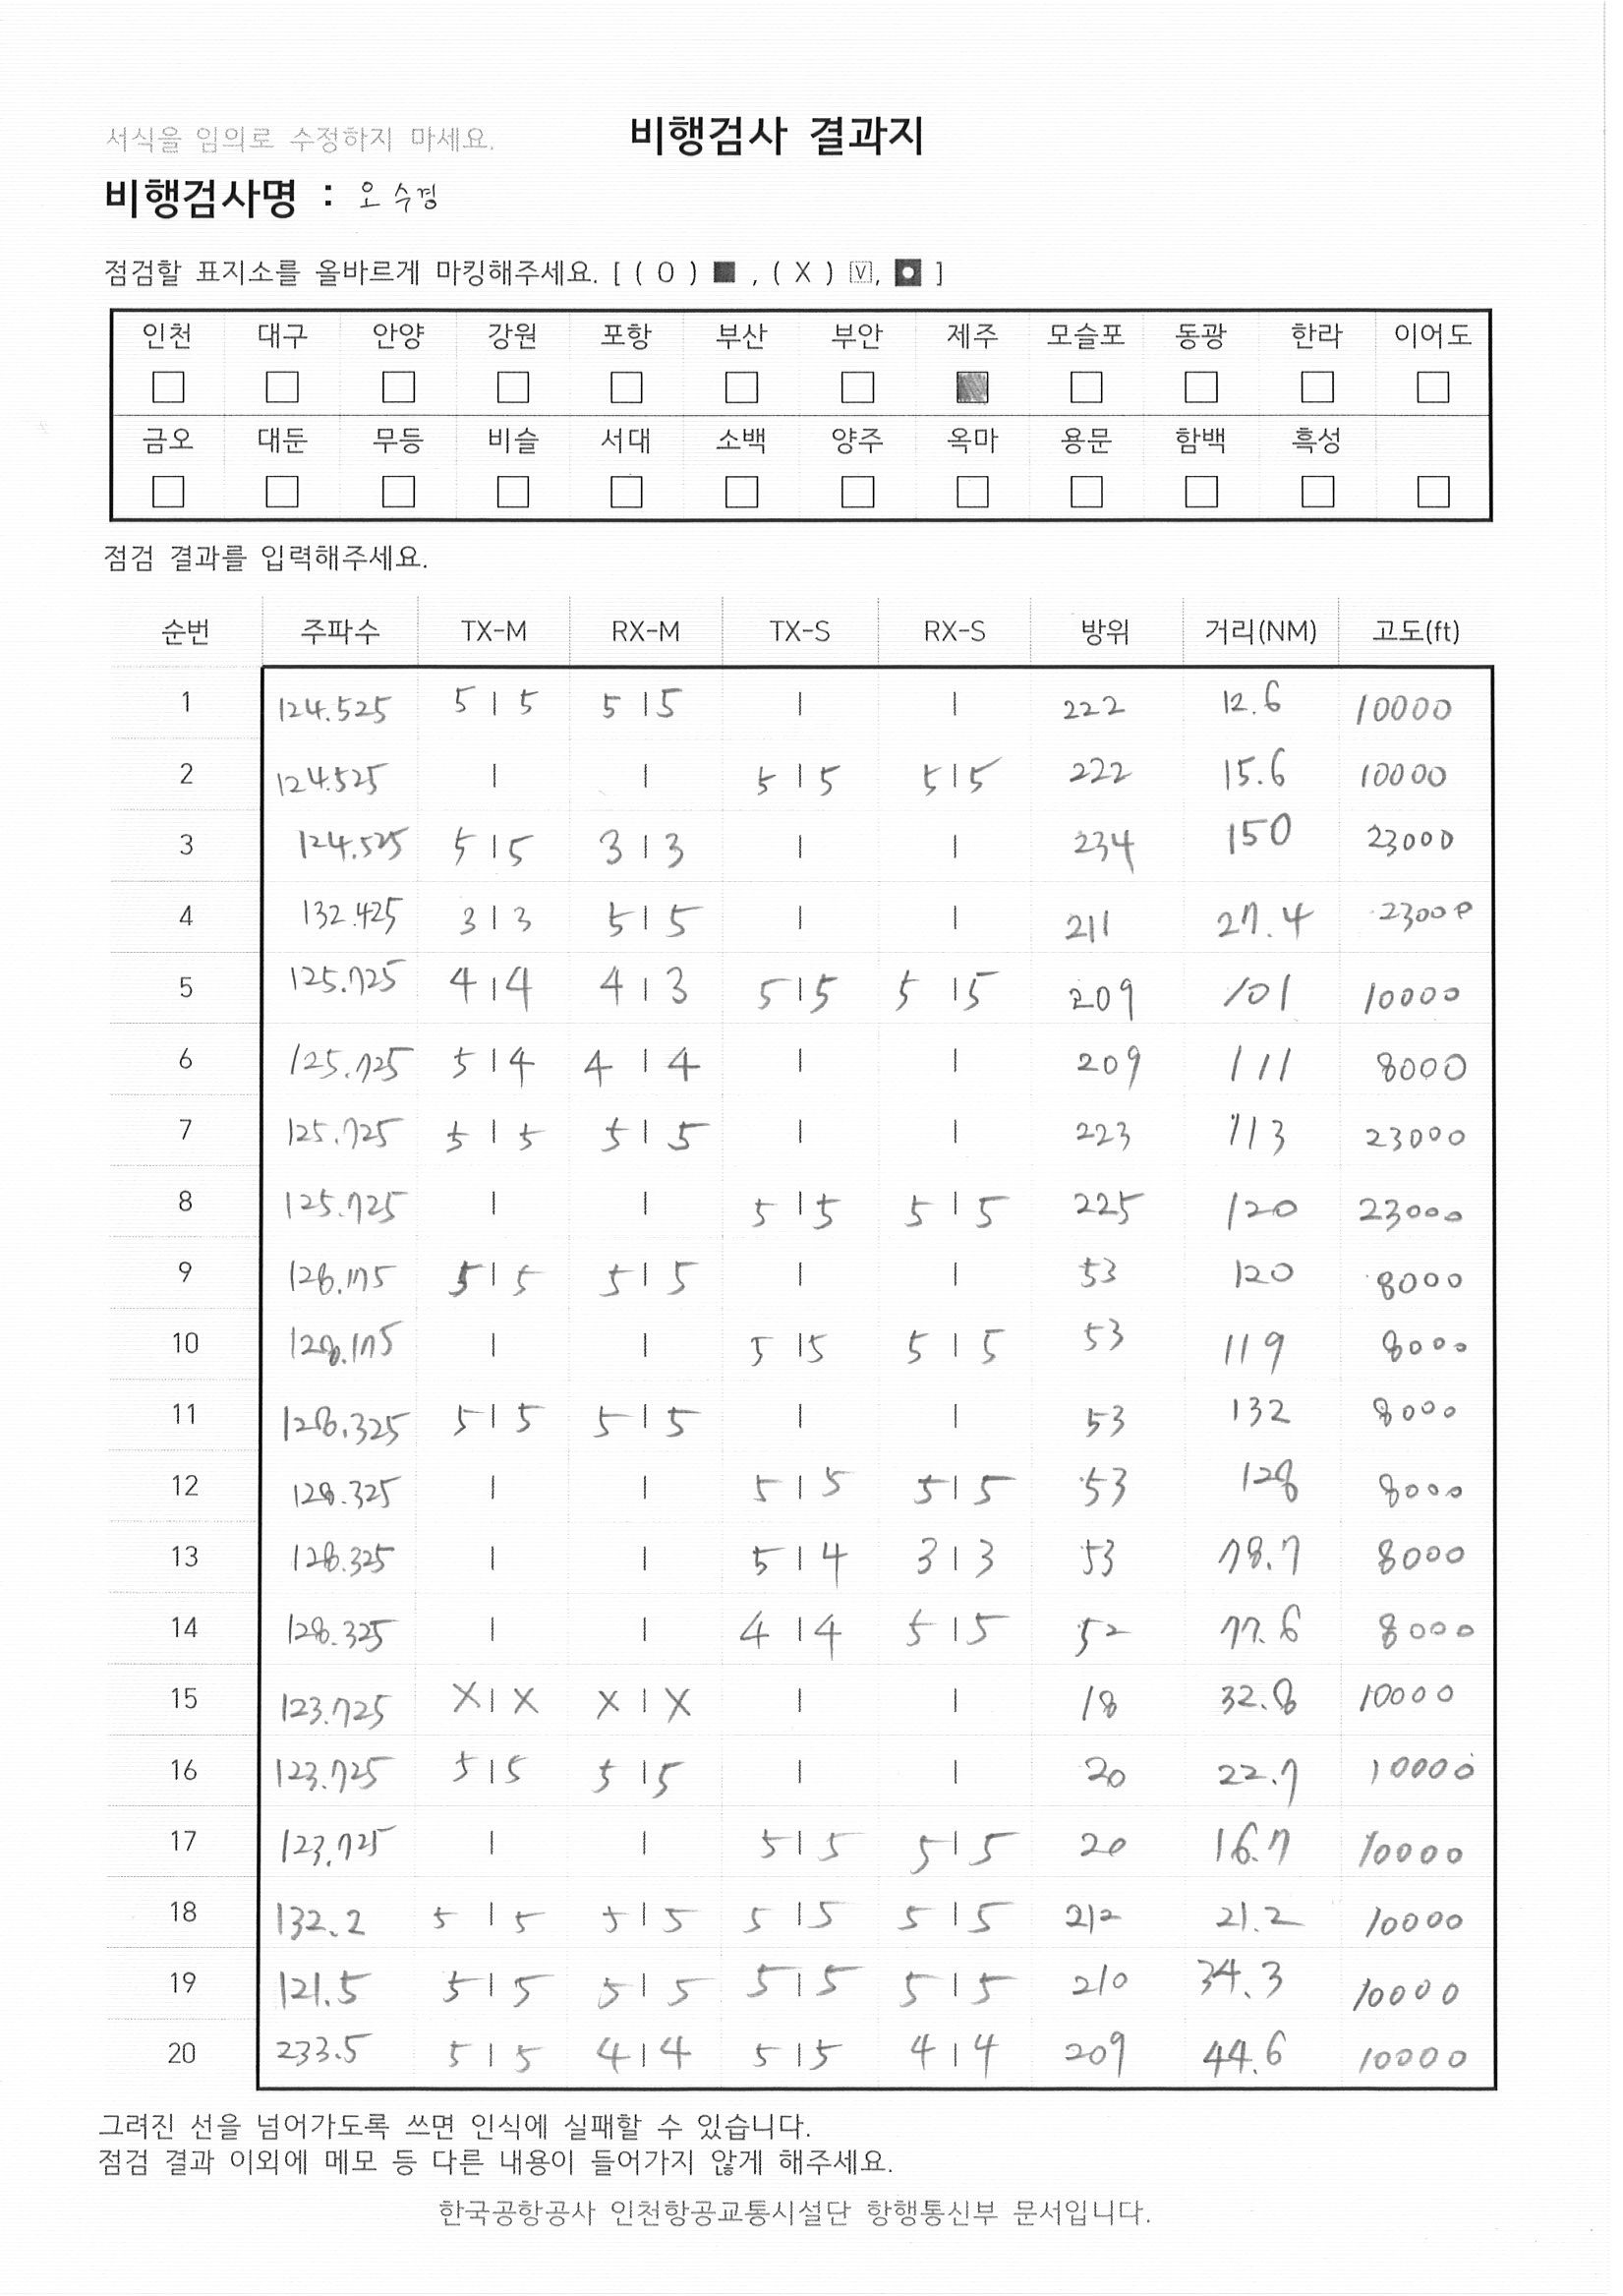 서식을 임의로 수정하지 마세요. 비행검사 결과지
비행검사명 : 오수경
점검할 표지소를 올바르게 마킹해주세요. [ ( O ) ■ , ( X ) ☑, ◘ ]
인천 대구 안양 강원 포항 부산 부안 제주 모슬포 동광 한라 이어도
금오 대둔 무등 비슬 서대 소백 양주 옥마 용문 함백 흑성
점검 결과를 입력해주세요.
순번 주파수 TX-M RX-M TX-S RX-S 방위 거리(NM) 고도(ft)
1 124.525 5 | 5 5 | 5 | | 222 12.6 10000
2 124.525 | | 5 | 5 5 | 5 222 15.6 10000
3 124.525 5 | 5 3 | 3 | | 234 150 23000
4 132.425 3 | 3 5 | 5 | | 211 27.4 23000
5 125.725 4 | 4 4 | 3 5 | 5 5 | 5 209 101 10000
6 125.725 5 | 4 4 | 4 | | 209 111 8000
7 125.725 5 | 5 5 | 5 | | 223 113 23000
8 125.725 | | 5 | 5 5 | 5 225 120 23000
9 128.175 5 | 5 5 | 5 | | 53 120 8000
10 128.175 | | 5 | 5 5 | 5 53 119 8000
11 128.325 5 | 5 5 | 5 | | 53 132 8000
12 128.325 | | 5 | 5 5 | 5 53 128 8000
13 128.325 | | 5 | 4 3 | 3 53 78.7 8000
14 128.325 | | 4 | 4 5 | 5 52 77.6 8000
15 123.725 X | X X | X | | 18 32.8 10000
16 123.725 5 | 5 5 | 5 | | 20 22.7 10000
17 123.725 | | 5 | 5 5 | 5 20 16.7 10000
18 132.2 5 | 5 5 | 5 5 | 5 5 | 5 212 21.2 10000
19 121.5 5 | 5 5 | 5 5 | 5 5 | 5 210 34.3 10000
20 233.5 5 | 5 4 | 4 5 | 5 4 | 4 209 44.6 10000
그려진 선을 넘어가도록 쓰면 인식에 실패할 수 있습니다.
점검 결과 이외에 메모 등 다른 내용이 들어가지 않게 해주세요.
한국공항공사 인천항공교통시설단 항행통신부 문서입니다.